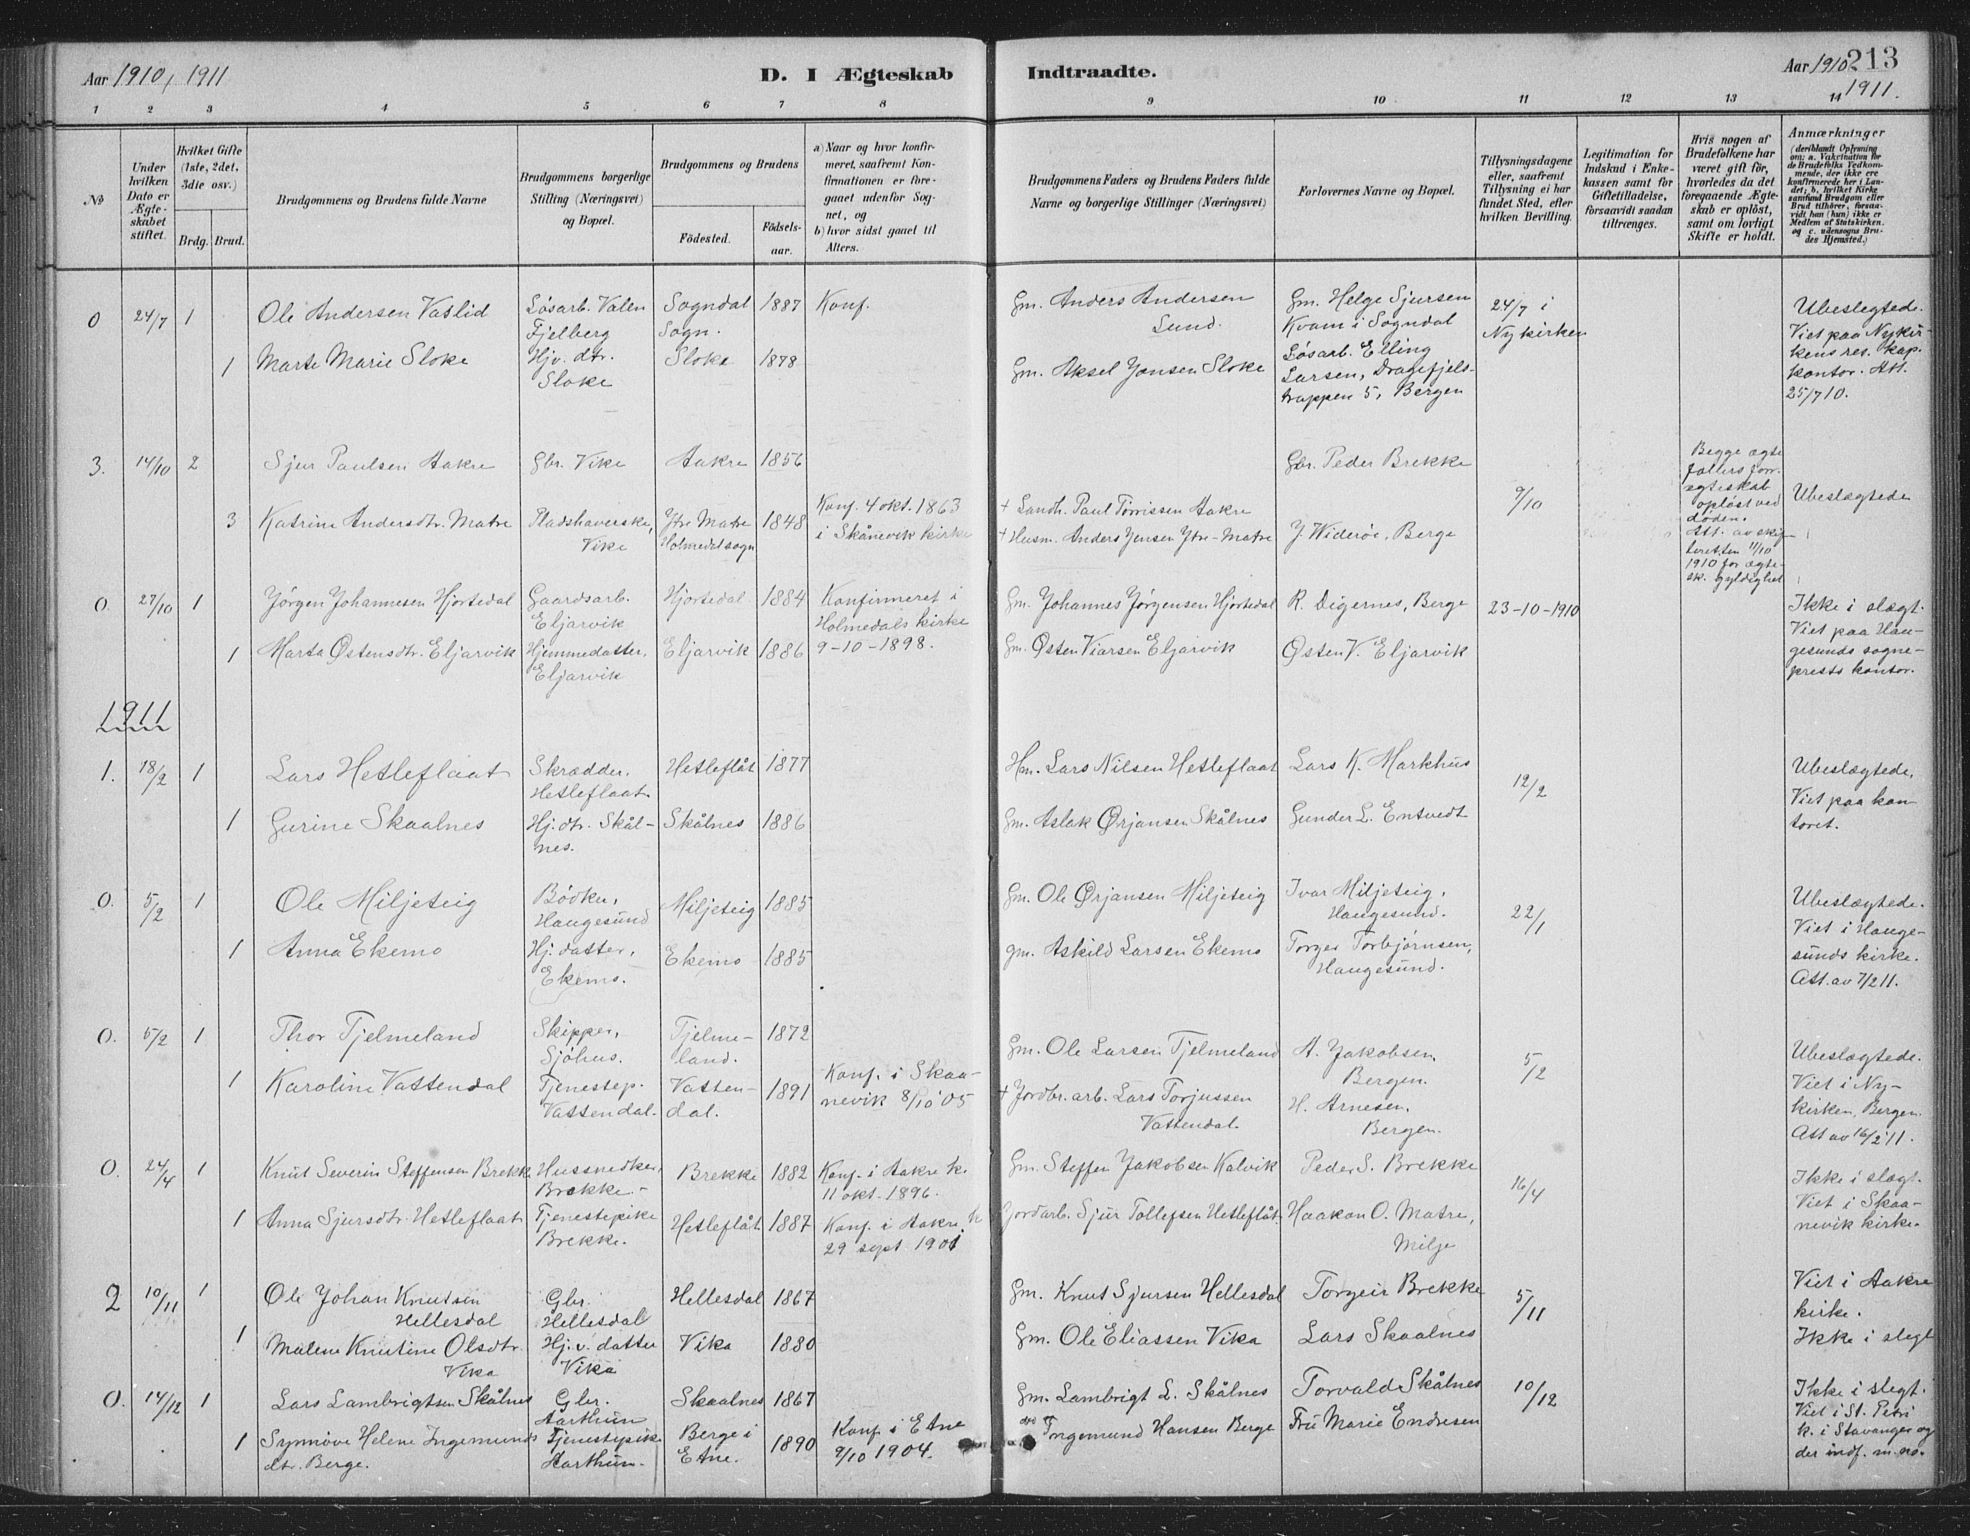 Aar 1910, 1911
D. I Ægteskab
Indtraadte.
Aar 1910 213
1911.
1 2 3 4 5 6 7 8 9 10 11 12 13 14
No
Under hvilken Dato er Ægteskabet stiftet.
Hvilket Gifte (1ste, 2det, 3die osv.)
Brdg. Brud.
Brudgommens og Brudens fulde Navne
Brudgommens borgerlige Stilling (Næringsvei) og Bopæl.
Brudgommens og Brudens
Fødested.
Fødsels-aar.
a) Naar og hvor konfirmeret, saafremt Konfirmationen er foregaaet udenfor Sognet, og
b) hvor sidst gaaet til Alters.
Brudgommens Faders og Brudens Faders fulde Navne og borgerlige Stillinger (Næringsvei)
Forlovernes Navne og Bopæl.
Tillysningsdagene eller, saafremt Tillysning ei har fundet Sted, efter hvilken Bevilling.
Legitimation for Indskud i Enkekassen samt for Giftetilladelse, forsaavidt saadan tiltrænges.
Hvis nogen af Brudefolkene har været gift før, hvorledes da det foregaaende Ægteskab er opløst, samt om lovligt Skifte er holdt.
Anmærkninger
(deriblandt Oplysning om: a. Vakcination for de Brudefolks Vedkommende, der ikke ere konfirmerede her i Landet; b. hvilket Kirkesamfund Brudgom eller Brud tilhører, forsaavidt han (hun) ikke er Medlem af Statskirken. og c. udensogns Brudes Hjemsted.)
0 24/7 1 Ole Andersen Vaslid Løsarb. Valen Fjelberg Sogndal Sogn. 1887 Konf. Gm. Anders Andersen Lund. Gm. Helge Sjursen Kvam i Sogndal 24/7 i Nykirken Ubeslegtede. Viet paa Nykirkens res. kap. kontor. Att. 25/7 10.
1 Marte Marie Sloke Hjv. dtr. Sloke Sloke 1878 Gm. Aksel Jansen Sloke Løsarb. Elling Larsen, Dragefjelstrappen 5, Bergen
3. 14/10 2 Sjur Paulsen Aakre Gbr. Vike Aakre 1856 + Landh. Paul Tørrissen Aakre Gbr. Peder Brekke 9/10 Begge ægtefællers forr. egteskab opløst ved døden. Att. av skifteret. ten 11/10 1910 for ægtesk. gyldighet Ubeslægtede
3 Katrine Andersdtr. Matre Pladshaverske, Vike Ytr. Matre Holmedal sogn 1848 Konf. 4 okt. 1863 i Skånevik kirke + Husm. Anders Jensen Ytre-Matre J. Widerøe, Berge
0. 27/10 1 Jørgen Johannesen Hjortedal Gaardsarb. Eljarvik Hjortedal 1884 Konfirmeret i Holmedals kirke 9-10-1898. Gm. Johannes Jørgensen Hjortedal R. Digernes, Berge 23-10-1910 Ikke i slægt. Viet paa Haugesunds sogneprests kontor.
1 Marta Østensdtr. Eljarvik Hjemmedatter, Eljarvik Eljarvik 1886 Gm. Østen Viarsen Eljarvik Østen V. Eljarvik
1911
1. 18/2 1 Lars Hetleflaat Skrædder. Hetleflaat. Hetleflåt 1877 Hm. Lars Nilsen Hetleflaat Lars K. Markhus 12/2 Ubeslægtede, Viet paa kontoret.
1 Gurine Skaalnes Hj. dtr. Skålnes. Skålnes 1886 Gm. Aslak Ørjansen Skålnes Gunder L. Entvedt
0. 5/2 1 Ole Miljeteig Bødker, Haugesund Miljeteig 1885 Gm. Ole Ørjansen Miljeteig Ivar Miljeteig, Haugesund. 22/1 Ubeslægtede. Viet i Haugesunds kirke. Att. av 7/2 11.
1 Anna Ekemo Hj. datter, Ekemo. Ekemo 1885 gm. Askild Larsen Ekemo Torger Torbjørnsen, Haugesund.
0. 5/2 1 Thor Tjelmeland Skipper, Sjøhus. Tjelmeland. 1872 Gm. Ole Larsen Tjelmeland A. Jakobsen, Bergen. 5/2 Ubeslægtede. Viet i Nykirken, Bergen. Att av 16/2 11.
1 Karoline Vattendal Tjenestep. Vattendal. Vattendal. 1891 Konf. i Skaanevik 8/10 05 + Jordbr. arb. Lars Torjussen Vattendal. H. Arnesen, Bergen.
0. 24/4 1 Knut Severin Steffensen Brekke Hussnedker, Brekke.- Brekke 1882 Konf. i Aakre k. 11 okt. 1896. Gm. Steffen Jakobsen Kalvik Peder S. Brekke 16/4 Ikke i slægt. Viet i Skaanevik kirke.
1 Anna Sjursdtr. Hetleflaat Tjenestepike Brekke. Hetleflåt 1887 Konf. i Aakre k 29 sept 1901 Jordarb. Sjur Tollefsen Hetleflåt Haakon O. Matre, Milje
2 10/11 1 Ole Johan Knutsen Hellesdal Gbr. Hellesdal Hellesdal 1867 Gm. Knut Sjursen Hellesdal Torgeir Brekke 5/11 Viet i Aakre kirke. Ikke i slegt
1 Malene Knutine Olsdtr. Vika Hj. v. datter Vika Vika 1880 Gm. Ole Eliassen Vika Lars Skaalnes
0. 14/12 1 Lars Lambrigtsen Skålnes Gbr. Aarthun Skaalnes 1867 Gm. Lambrigt L. Skålnes Torvald Skålnes 10/12 Ikke i slegt. Viet i St. Petri k. i Stavanger og der indf. m. no.
1 Synnøve Helene Ingemundsdtr. Berge. Tjenestepike Aarthun. Berge i Etne. 1890 Konf. i Etne 9/10 1904. Ingemund Hansen Berge Fru Marie Endresen